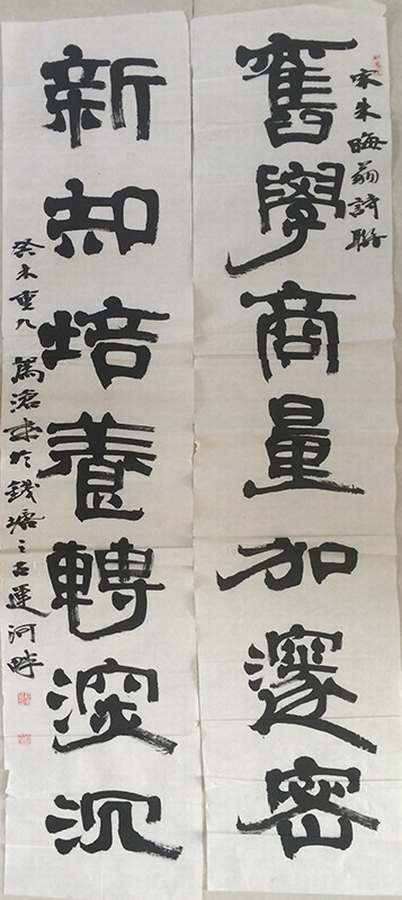 宋朱晦翁詩聯
舊學商量加邃密
新知培養轉深沉
癸未重九 馬滄來於錢塘之古運河畔